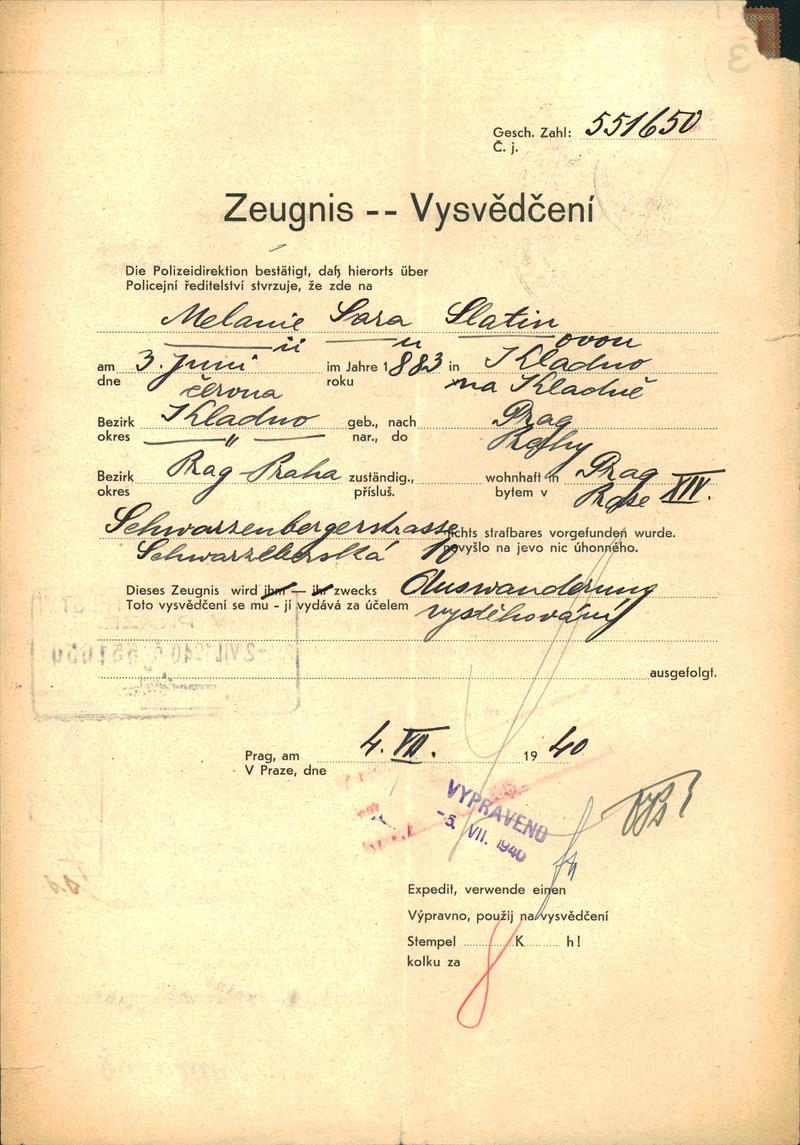 Gesch. Zahl: 551650
Č. j.
Zeugnis -- Vysvědčení
Die Polizeidirektion bestätigt, daß hierorts über
Policejní ředitelství stvrzuje, že zde na
Melanie Sara Slatin
ovou
am 3. Juni im Jahre 1883 in Kladno
dne června roku na Kladně
Bezirk Kladno geb., nach Prag
okres " nar., do Prahy
Bezirk Prag-Praha zuständig., wohnhaft in Prag
okres přísluš. bytem v Praze XIV.
Schwarzenbergerstrasse nichts strafbares vorgefunden wurde.
Schwarzenberská 10 nevyšlo na jevo nic úhonného.
Dieses Zeugnis wird ihm — ihr zwecks Auswanderung
Toto vysvědčení se mu - jí vydává za účelem vystěhování
-2 VII. 1940 551650
ausgefolgt.
Prag, am 4. VII. 1940
V Praze, dne
VYPRAVENO
-5. VII. 1940
Expedit, verwende einen
Výpravno, použij na vysvědčení
Stempel K h!
kolku za